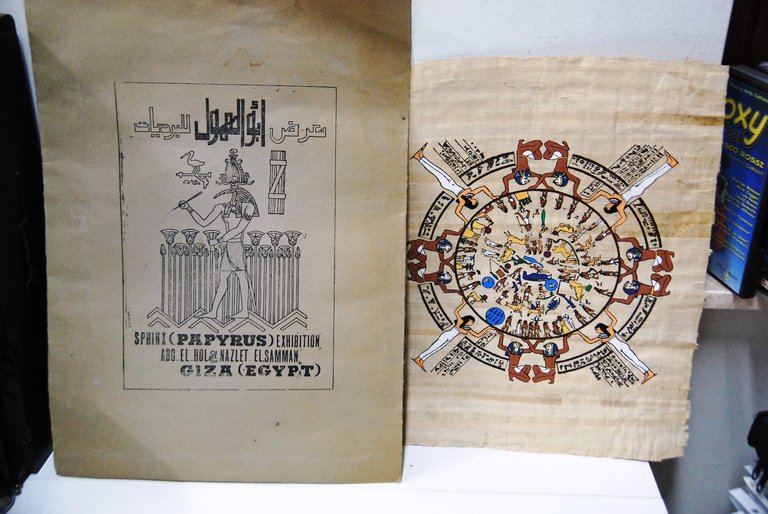 معرض أبو الهول للبرديات
SPHINX (PAPYRUS) EXHIBITION,
ABO. EL. HOL St. NAZLET EL.SAMMAN,
GIZA (EGYPT)
oxy
SCO ROSSI